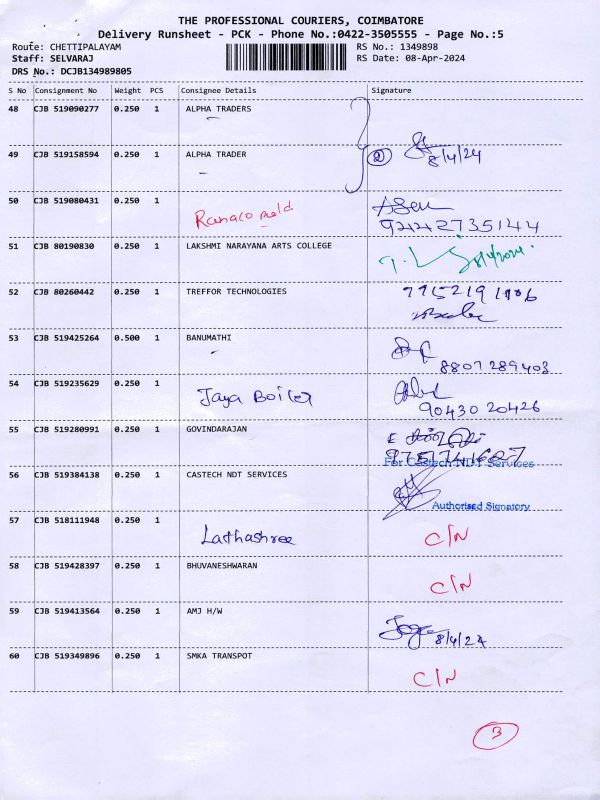 THE PROFESSIONAL COURIERS, COIMBATORE
Delivery Runsheet - PCK - Phone No.:0422-3505555 - Page No.:5
Route: CHETTIPALAYAM RS No.: 1349898
Staff: SELVARAJ RS Date: 08-Apr-2024
DRS No.: DCJB134989805
S No Consignment No Weight PCS Consignee Details Signature
48 CJB 519090277 0.250 1 ALPHA TRADERS
49 CJB 519158594 0.250 1 ALPHA TRADER 2 8/4/24
50 CJB 519080431 0.250 1
9442735144
51 CJB 80190830 0.250 1 LAKSHMI NARAYANA ARTS COLLEGE 8/4/2024.
52 CJB 80260442 0.250 1 TREFFOR TECHNOLOGIES
53 CJB 519425264 0.500 1 BANUMATHI
8807289403
54 CJB 519235629 0.250 1 Jaya Boiler
90430 20426
55 CJB 519280991 0.250 1 GOVINDARAJAN
For Castech NDT Services
56 CJB 519384138 0.250 1 CASTECH NDT SERVICES
Authorised Signatory
57 CJB 518111948 0.250 1 Lathashree C/N
58 CJB 519428397 0.250 1 BHUVANESHWARAN C/N
59 CJB 519413564 0.250 1 AMJ H/W 8/4/24
60 CJB 519349896 0.250 1 SMKA TRANSPOT C/N
3